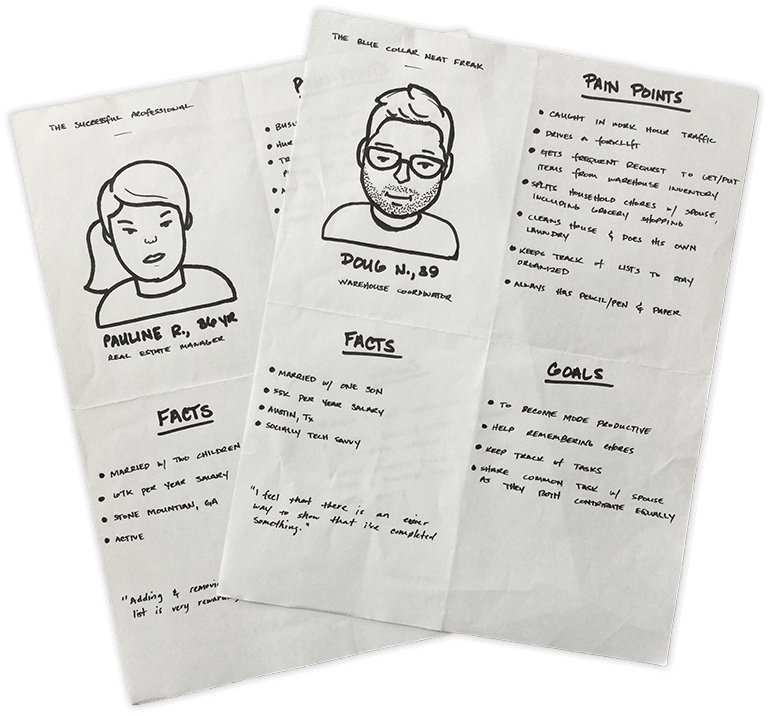 THE SUCCESSFUL PROFESSIONAL
PAULINE R., 36 YR
REAL ESTATE MANAGER
FACTS
• MARRIED W/ TWO CHILDREN
• 67K PER YEAR SALARY
• STONE MOUNTIAN, GA
• ACTIVE
"Adding & removi
list is very
P
• BUSY
• HUR
• TR
• A
THE BLUE COLLAR NEAT FREAK
DOUG N., 39
WAREHOUSE COORDINATOR
FACTS
• MARRIED W/ ONE SON
• 55K PER YEAR SALARY
• AUSTIN, TX
• SOCIALLY TECH SAVVY
"I feel that there is an easier
way to show that i've completed
something."
PAIN POINTS
• CAUGHT IN WORK HOUR TRAFFIC
• DRIVES A FORKLIFT
• GETS FREQUENT REQUEST TO GET/PUT
ITEMS FROM WAREHOUSE INVENTORY
• SPLITS HOUSEHOLD CHORES W/ SPOUSE,
INCLUDING GROCERY SHOPPING
• CLEANS HOUSE & DOES HIS OWN
LAUNDRY
• KEEPS TRACK OF LISTS TO STAY
ORGANIZED
• ALWAYS HAS PENCIL/PEN & PAPER
GOALS
• TO BECOME MODE PRODUCTIVE
• HELP REMEMBERING CHORES
• KEEP TRACK OF TASKS
• SHARE COMMON TASK W/ SPOUSE
AS THEY BOTH CONTRIBUTE EQUALLY